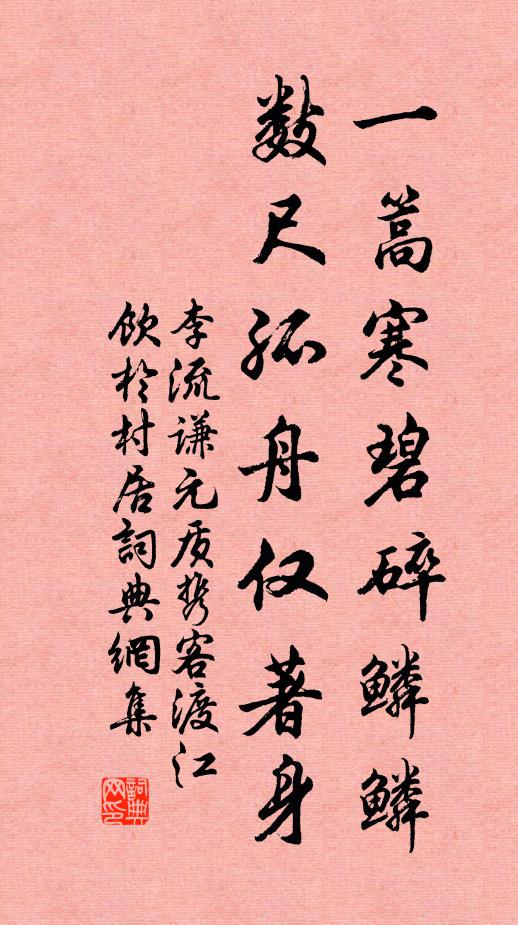 一篙寒碧碎鳞鳞
数尺孤舟仅著身
李流谦元质携客渡江
饮於村居詞典網集
詞典网印